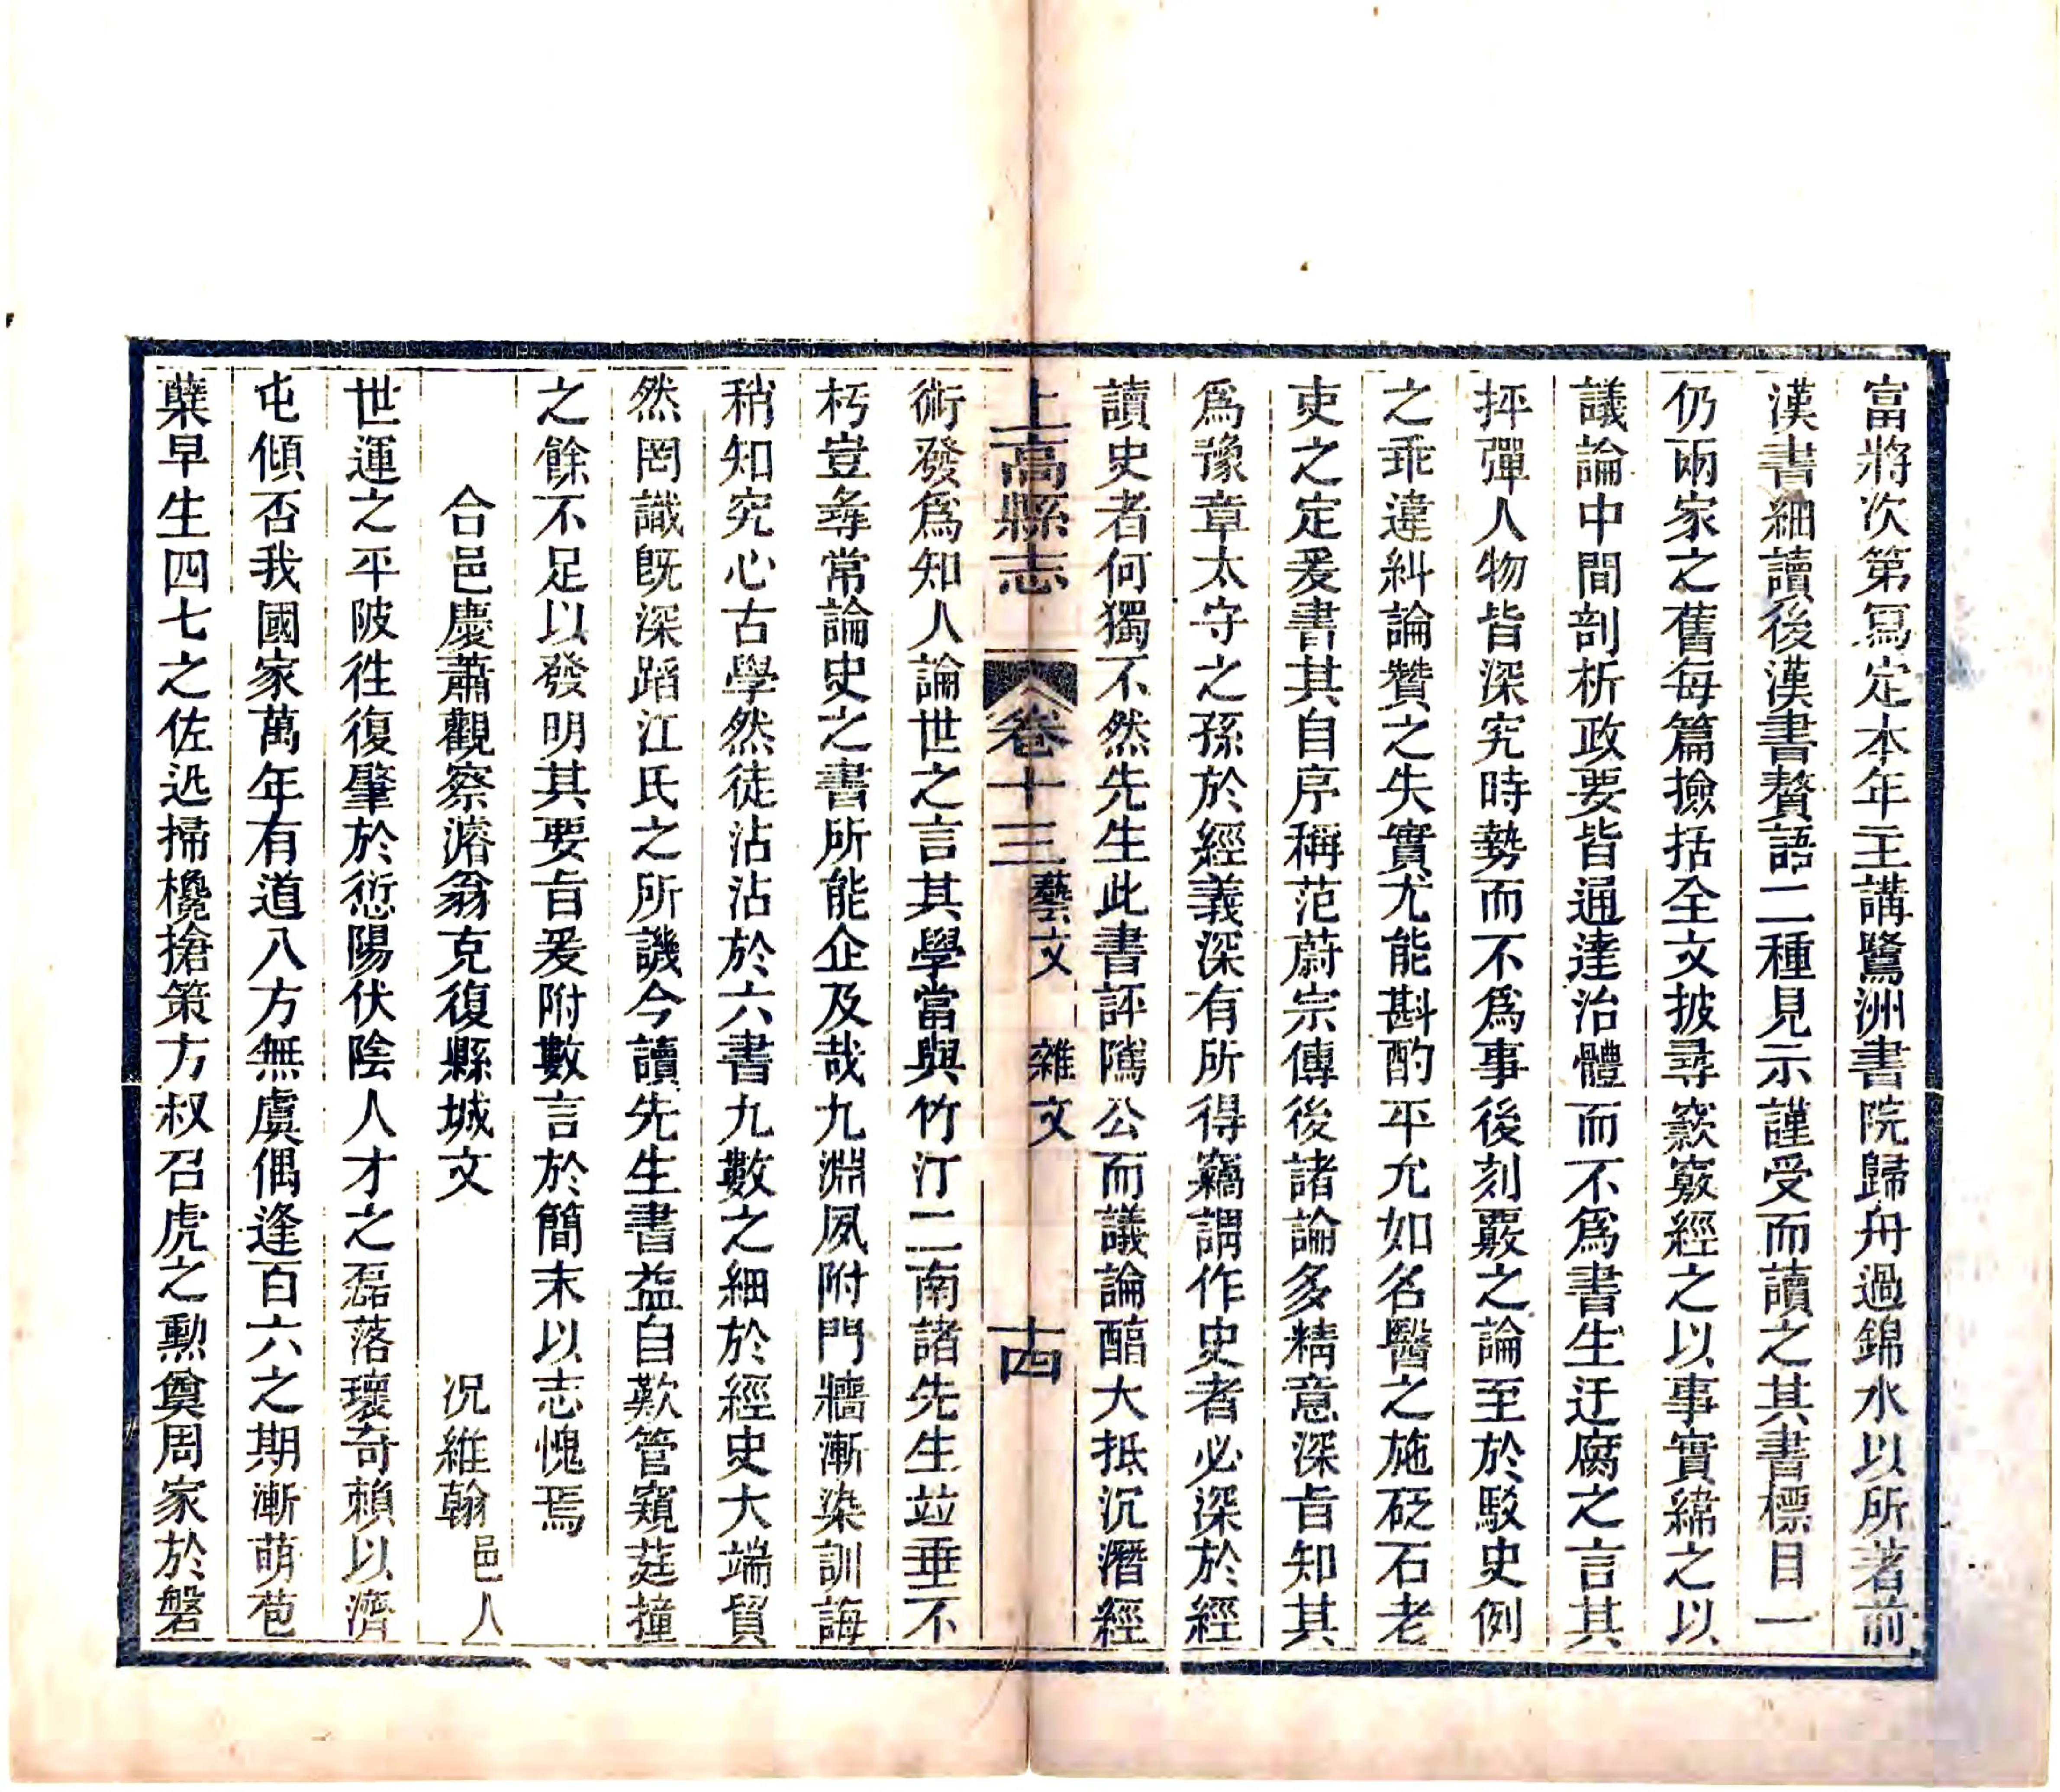 富將次第寫定本年主講鷺洲書院歸舟過錦水以所著前
漢書細讀後漢書贅語二種見示謹受而讀之其書標目一
仍兩家之舊每篇撿括全文披尋窾竅經之以事實緯之以
議論中間剖析政要皆通達治體而不爲書生迂腐之言其
抨彈人物皆深究時勢而不爲事後刻覈之論至於駁史例
之乖違糾論贊之失實尤能斟酌平允如名醫之施砭石老
吏之定爰書其自序稱范蔚宗傳後諸論多精意深旨知其
爲豫章太守之孫於經義深有所得竊謂作史者必深於經
讀史者何獨不然先生此書評隲公而議論醕大抵沉潛經
上高縣志 卷十三 藝文 雜文 十四
術發爲知人論世之言其學當與竹汀二南諸先生竝垂不
朽豈尋常論史之書所能企及哉九淵夙附門牆漸染訓誨
稍知究心古學然徒沾沾於六書九數之細於經史大端貿
然罔識旣深蹈江氏之所譏今讀先生書益自歎管窺莛撞
之餘不足以發明其要旨爰附數言於簡末以志愧焉
合邑慶蕭觀察濬翁克復縣城文 况維翰 邑人
世運之平陂徃復肇於愆陽伏陰人才之磊落瓌奇賴以濟
屯傾否我國家萬年有道八方無虞偶逢百六之期漸萌苞
蘖早生四七之佐迅掃欃搶策方叔召虎之勲奠周家於磐